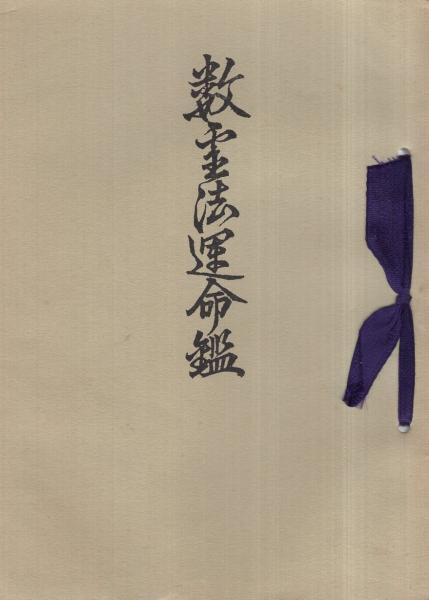 数霊法運命鑑